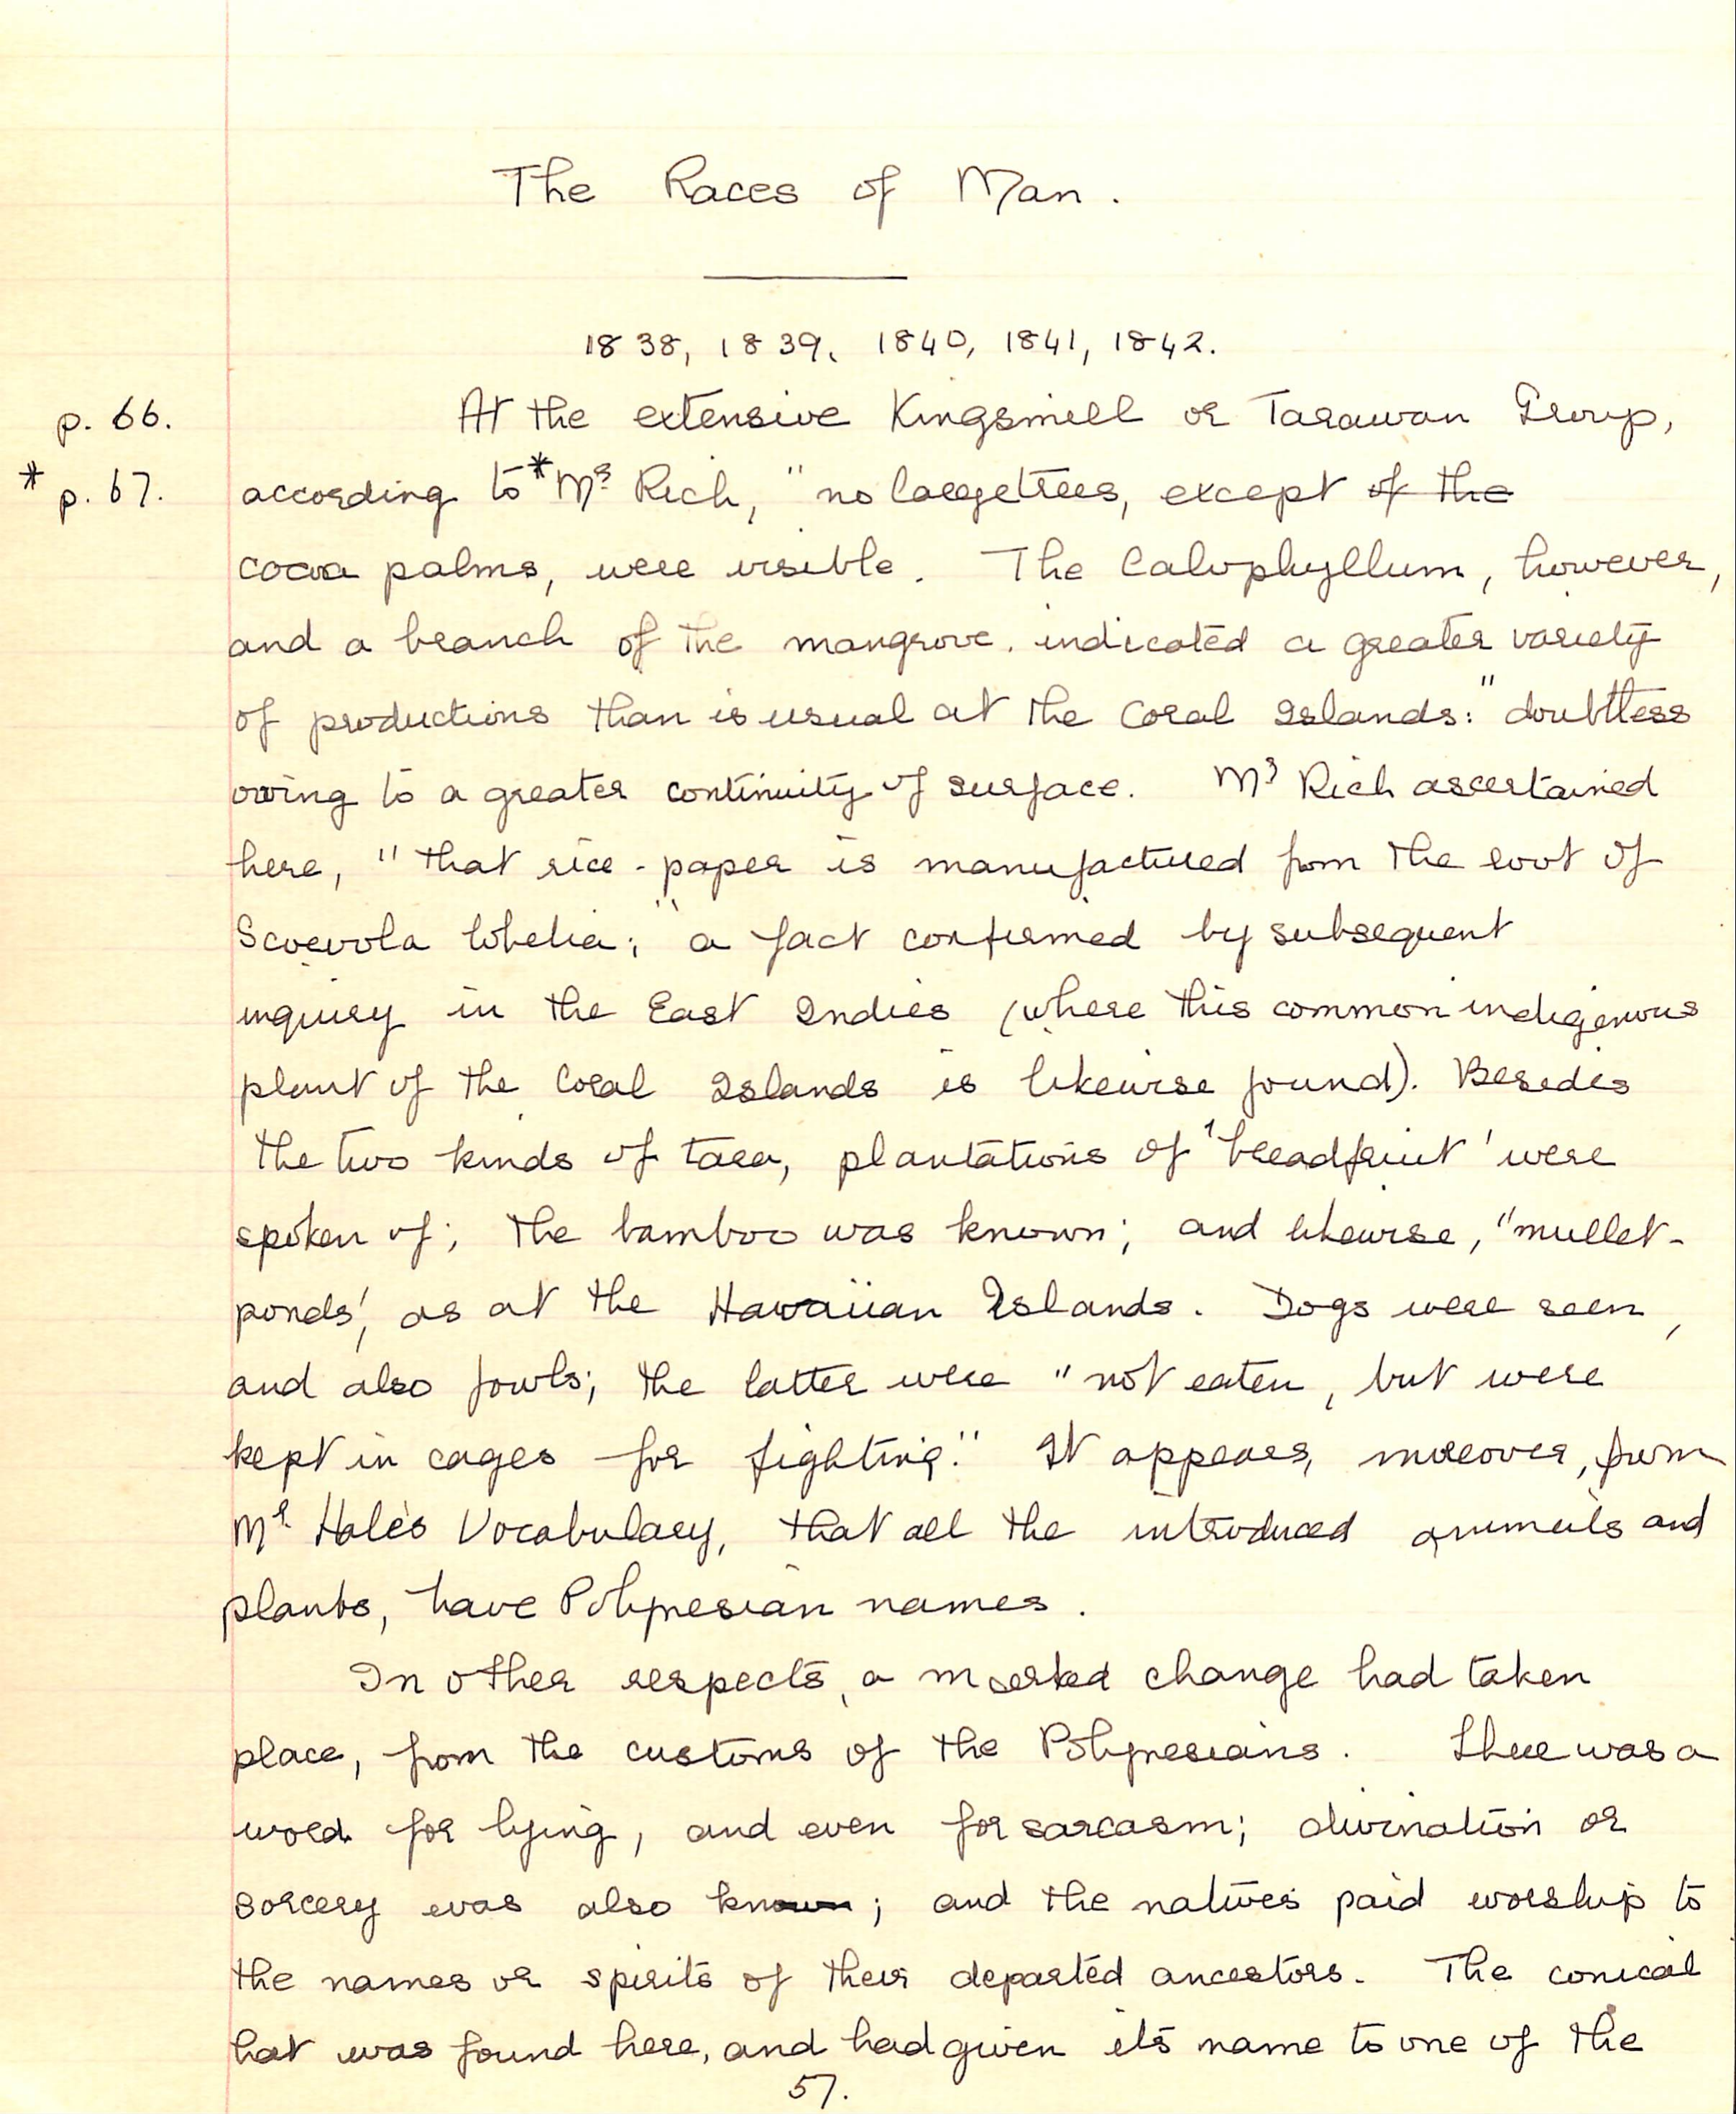 The Races of Man.
1838, 1839, 1840, 1841, 1842.
p. 66. At the extensive Kingsmill or Tarawan Group,
* p. 67. according to *Mr Rich, "no large trees, except of the
cocoa palms, were visible. The Calophyllum, however,
and a branch of the mangrove, indicated a greater variety
of productions than is usual at the Coral Islands:" doubtless
owing to a greater continuity of surface. Mr Rich ascertained
here, "that rice-paper is manufactured from the root of
Scoevola lobelia;" a fact confirmed by subsequent
inquiry in the East Indies (where this common indigenous
plant of the Coral Islands is likewise found). Besides
the two kinds of taro, plantations of 'breadfruit' were
spoken of; the bamboo was known; and likewise, "mullet-
ponds', as at the Hawaiian Islands. Dogs were seen,
and also fowls; the latter were "not eaten, but were
kept in cages for fighting." It appears, moreover, from
Mr Hale's Vocabulary, that all the introduced animals and
plants, have Polynesian names.
In other respects, a marked change had taken
place, from the customs of the Polynesians. There was a
word for lying, and even for sarcasm; divination or
sorcery was also known; and the natives paid worship to
the names or spirits of their departed ancestors. The conical
hat was found here, and had given its name to one of the
57.